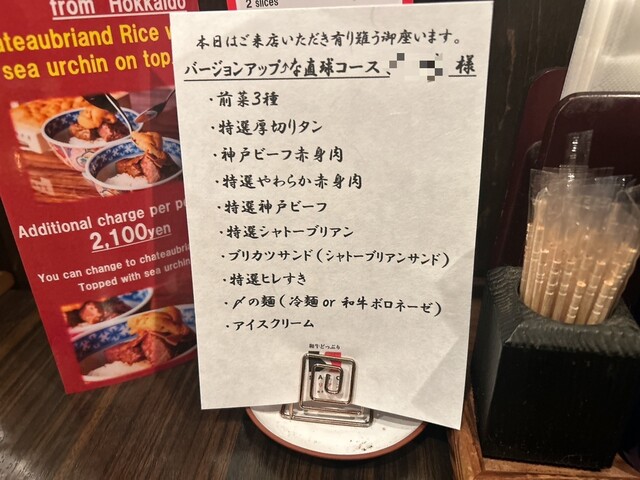 from Hokkaido
ateaubriand Rice w
sea urchin on top
Additional charge per pe
2,100yen
You can change to chateaubria
Topped with sea urchin
2 slices
本日はご来店いただき有り難う御座います。
バージョンアップ⤴な直球コース、 様
・前菜3種
・特選厚切りタン
・神戸ビーフ赤身肉
・特選やわらか赤身肉
・特選神戸ビーフ
・特選シャトーブリアン
・ブリカツサンド(シャトーブリアンサンド)
・特選ヒレすき
・〆の麺(冷麺 or 和牛ボロネーゼ)
・アイスクリーム
和牛どっぷり